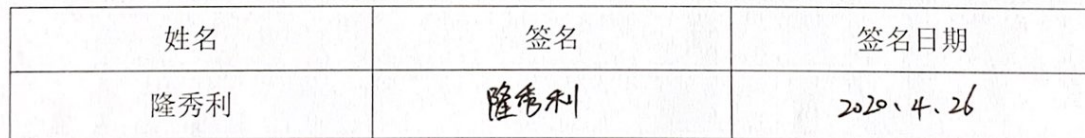 姓名 签名 签名日期
隆秀利 隆秀利 2020、4、26